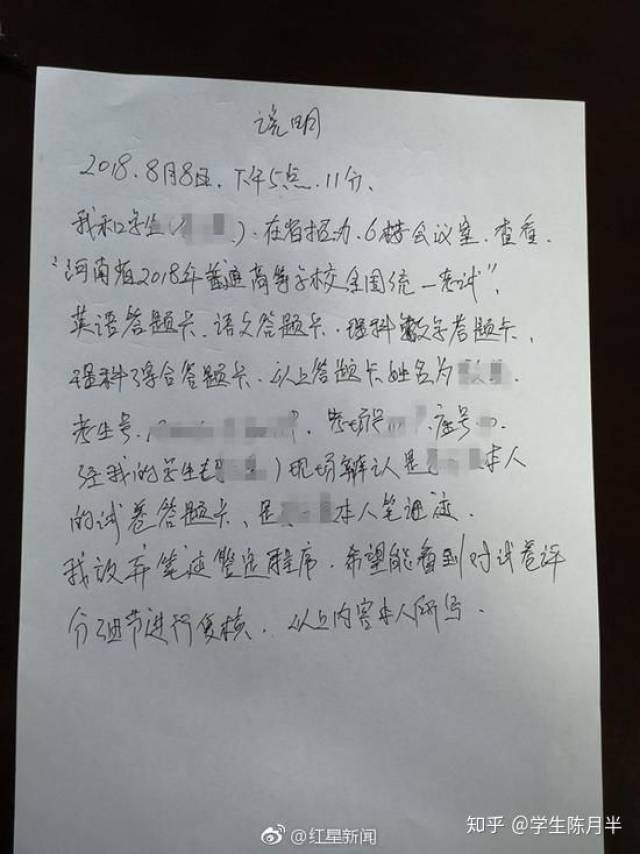 说明
2018.8月8日,下午5点.11分.
我和学生( ).在省招办.6楼会议室.查看.
“河南省2018年普通高等学校全国统一考试”,
英语答题卡、语文答题卡.理科数学答题卡、
理科综合答题卡.以上答题卡姓名为 .
考生号. ,考场号 ,座号 .
经我的学生 )现场辨认是 本人
的试卷答题卡、是 本人笔迹.
我放弃笔迹鉴定程序.希望能看到对试卷评
分细节进行复核.以上内容本人所写.
@红星新闻
知乎 @学生陈月半